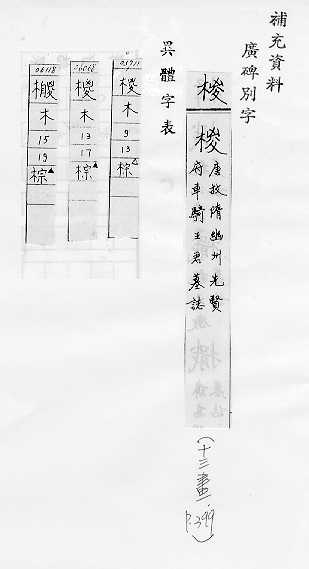 補充資料
廣碑別字
椶
椶
唐故隋幽州先賢
府車騎王君墓誌
(十三畫
P.399)
異體字表
01711
椶
木
9
13
棕△
06068
木
13
17
棕▲
06118
木
15
19
棕▲